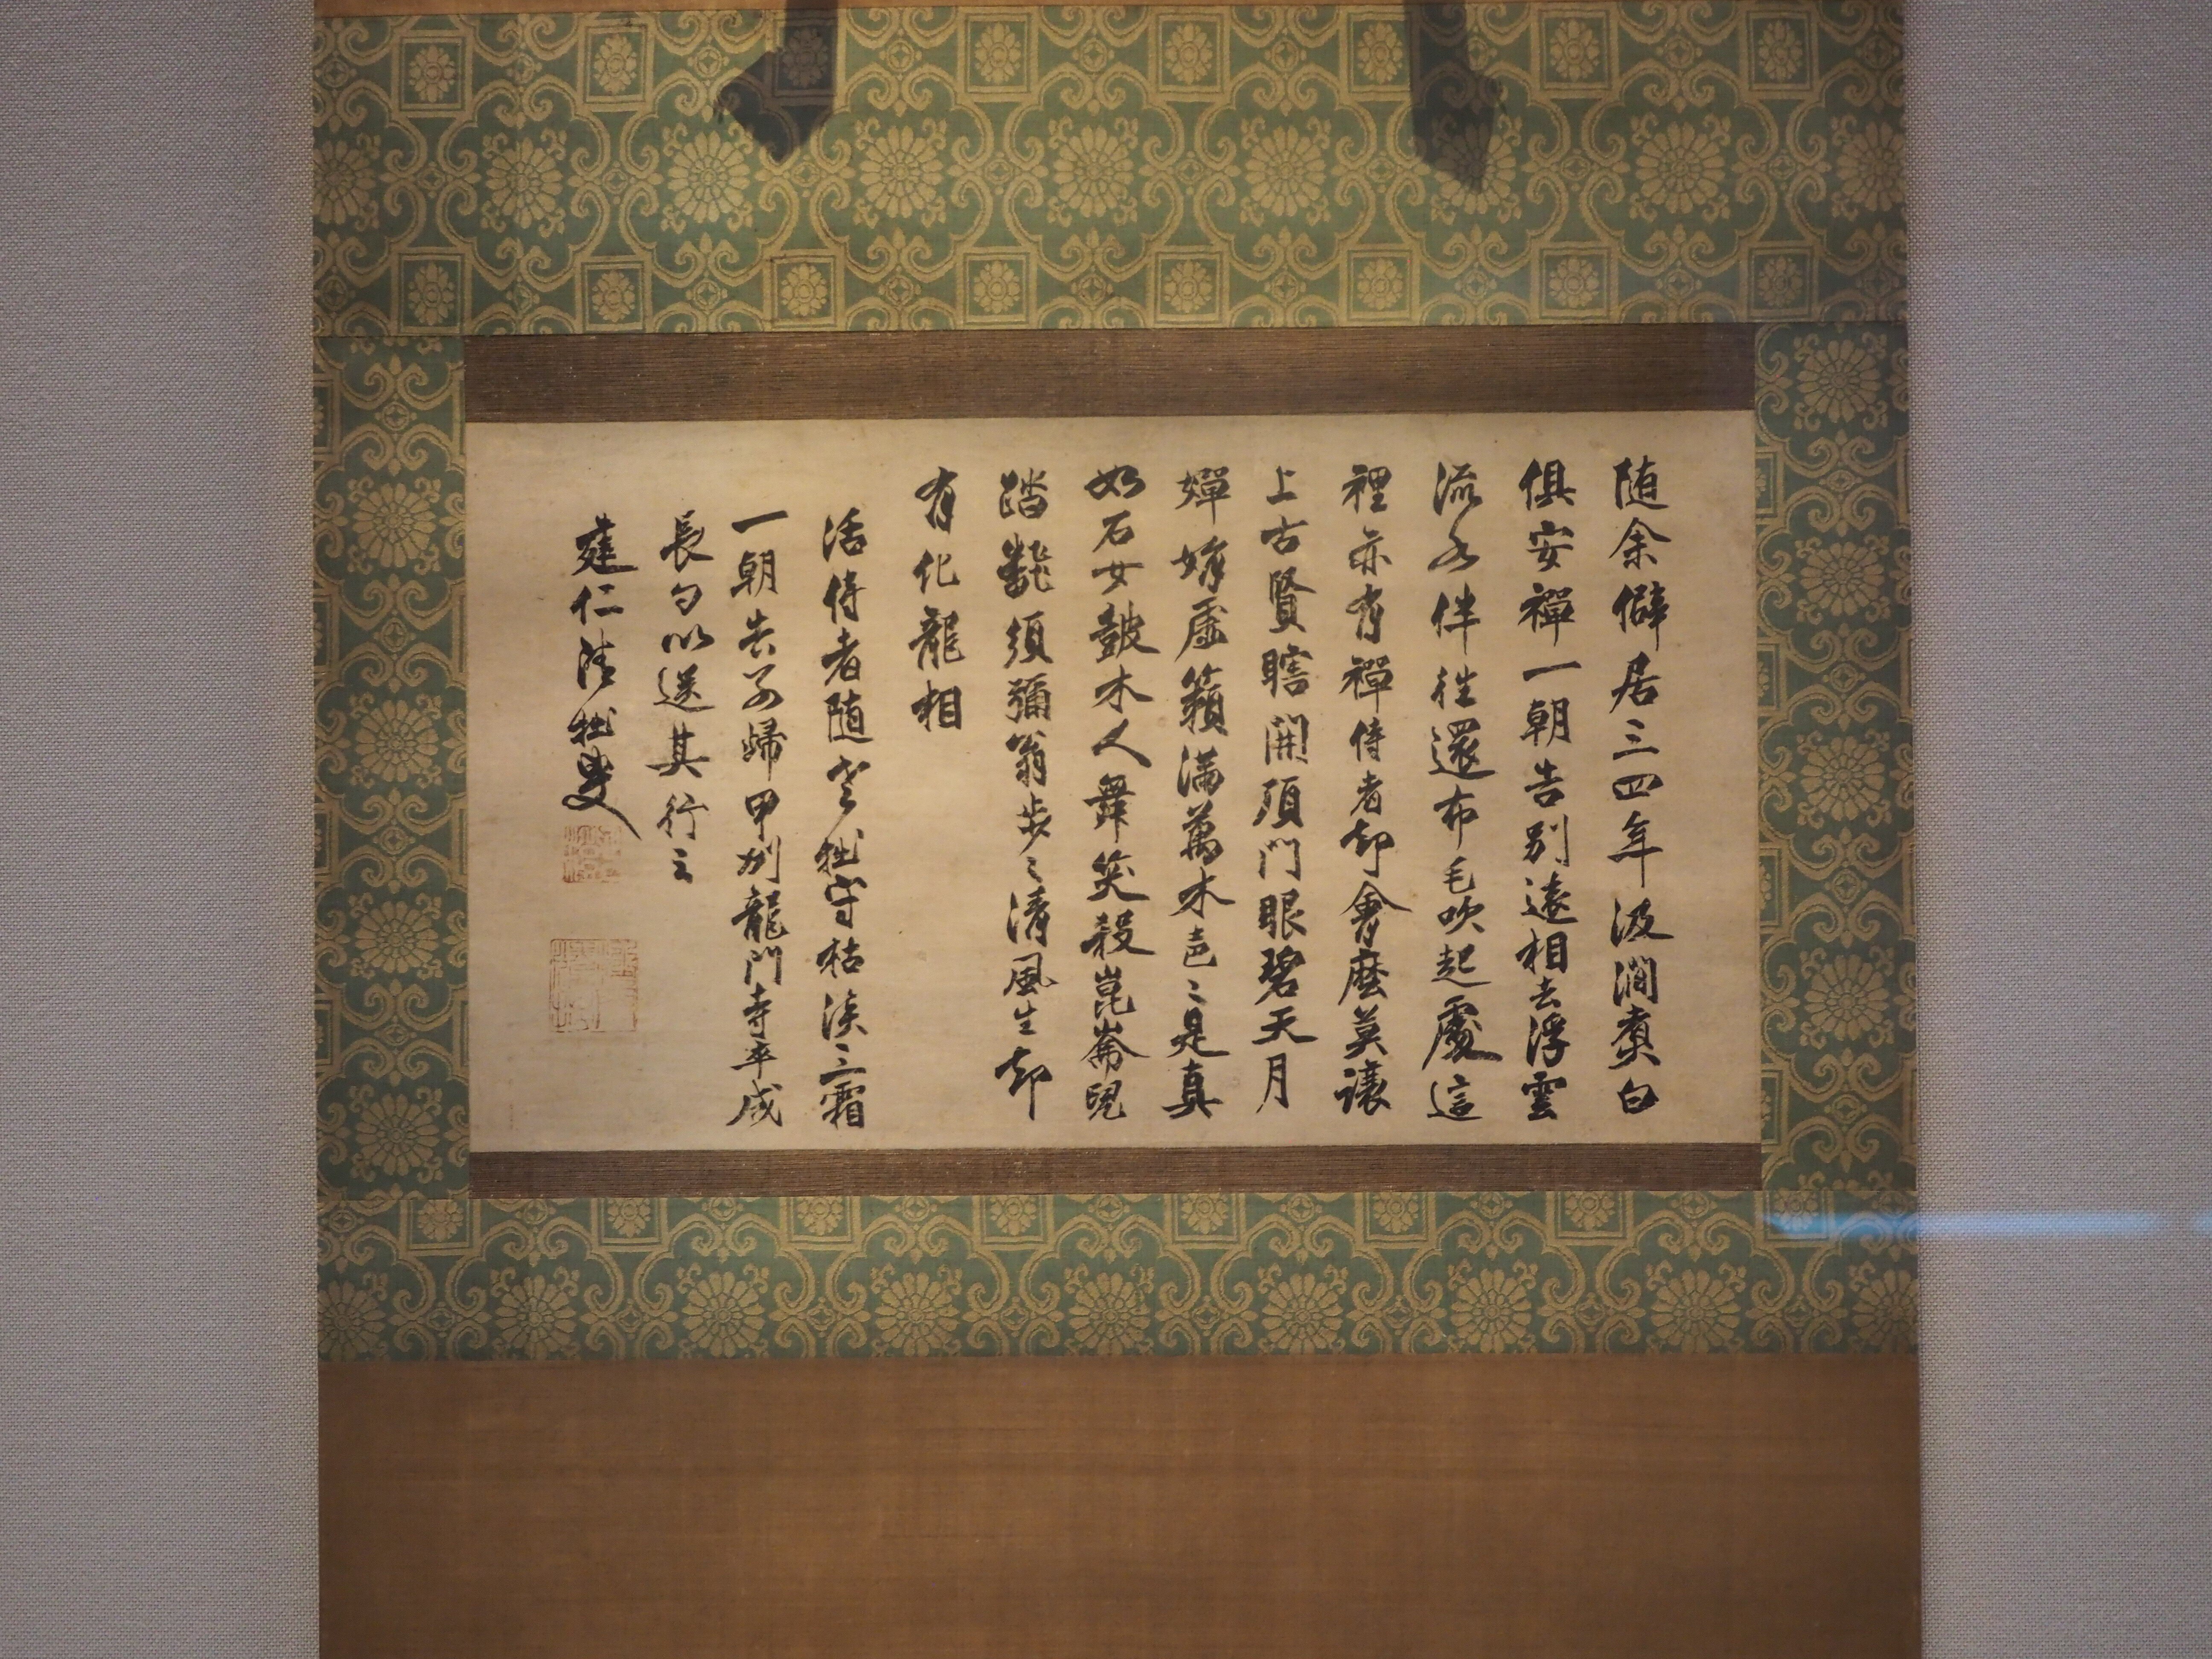 随余僻居三四年汲澗煑白
俱安禪一朝告別遠相去浮雲
流水伴往還布毛吹起處這
裡亦有禪侍者却會麼莫讓
上古賢瞎開頂門眼碧天月
嬋娟虛籟滿萬木色〻是真
如石女鼓木人舞笑殺崑崙兒
踏翻須彌翁步〻清風生却
有化龍相
活侍者随老拙守枯淡三霜
一朝告別歸甲州龍門寺卒成
長句以送其行云
建仁清拙叟